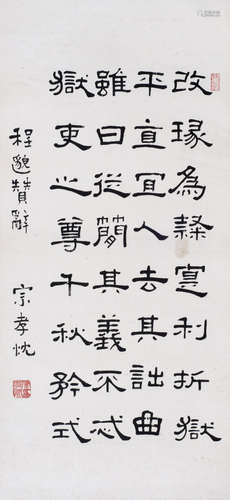 改瑑為隸寔利折獄
平直宜人去其詘曲
雖曰從簡其義不忒
獄吏之尊千秋矜式
程邈贊辭 宗孝忱